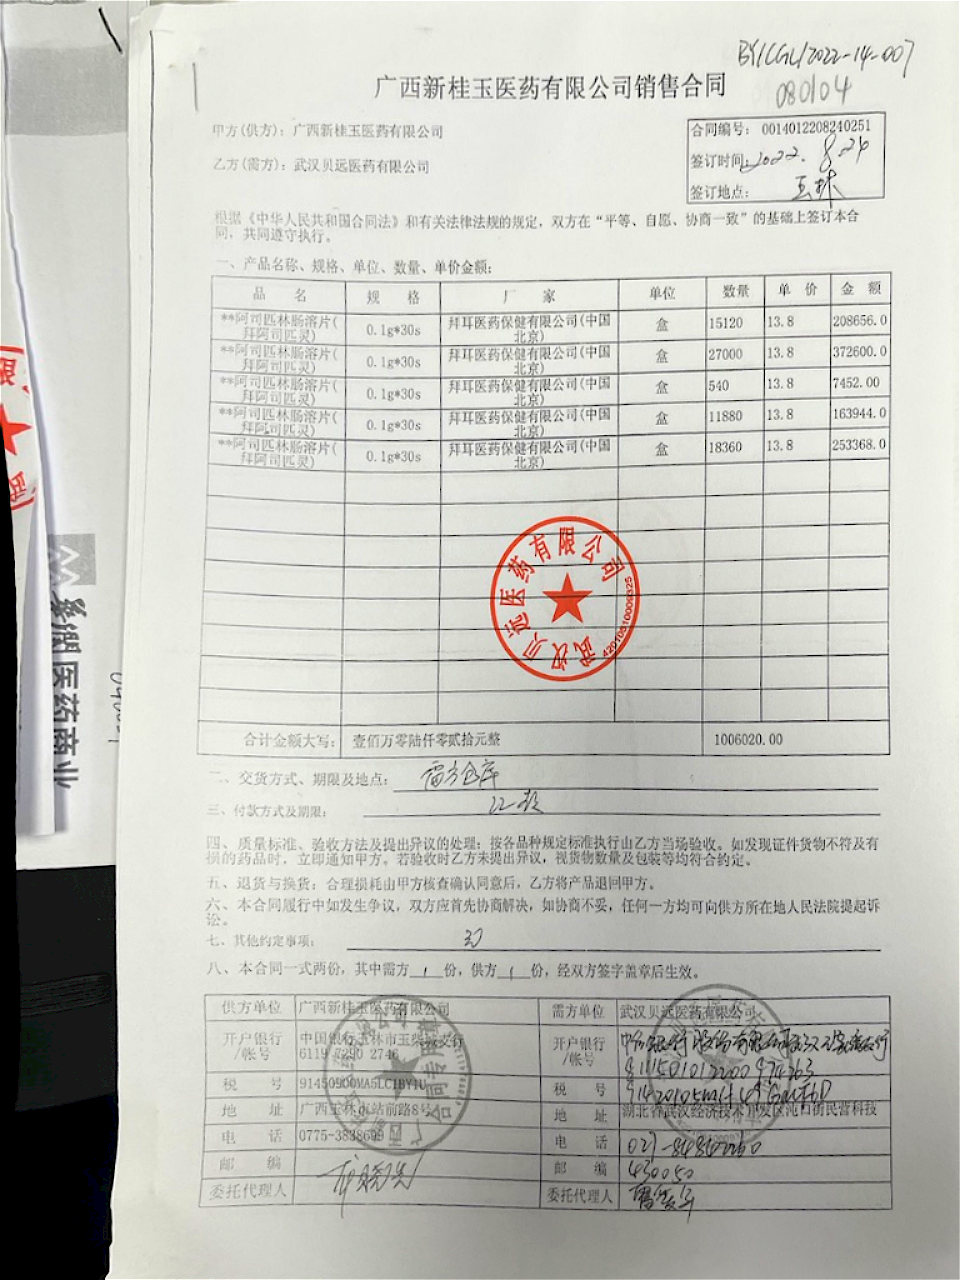 BYCGL/2022-14-007
080104
广西新桂玉医药有限公司销售合同
甲方(供方): 广西新桂玉医药有限公司
乙方(需方): 武汉贝远医药有限公司
合同编号: 0014012208240251
签订时间: 2022.8.24
签订地点: 玉林
根据《中华人民共和国合同法》和有关法律法规的规定，双方在“平等、自愿、协商一致”的基础上签订本合
同，共同遵守执行。
一、产品名称、规格、单位、数量、单价金额:
品 名 规 格 厂 家 单位 数量 单 价 金 额
**阿司匹林肠溶片(拜阿司匹灵) 0.1g*30s 拜耳医药保健有限公司(中国北京) 盒 15120 13.8 208656.0
**阿司匹林肠溶片(拜阿司匹灵) 0.1g*30s 拜耳医药保健有限公司(中国北京) 盒 27000 13.8 372600.0
**阿司匹林肠溶片(拜阿司匹灵) 0.1g*30s 拜耳医药保健有限公司(中国北京) 盒 540 13.8 7452.00
**阿司匹林肠溶片(拜阿司匹灵) 0.1g*30s 拜耳医药保健有限公司(中国北京) 盒 11880 13.8 163944.0
**阿司匹林肠溶片(拜阿司匹灵) 0.1g*30s 拜耳医药保健有限公司(中国北京) 盒 18360 13.8 253368.0
武汉贝远医药有限公司
合计金额大写: 壹佰万零陆仟零贰拾元整 1006020.00
二、交货方式、期限及地点: 需方仓库
三、付款方式及期限:
四、质量标准、验收方法及提出异议的处理: 按各品种规定标准执行由乙方当场验收。如发现证件货物不符及有
损的药品时，立即通知甲方。若验收时乙方未提出异议，视货物数量及包装等均符合约定。
五、退货与换货: 合理损耗由甲方核查确认同意后，乙方将产品退回甲方。
六、本合同履行中如发生争议，双方应首先协商解决，如协商不妥，任何一方均可向供方所在地人民法院提起诉
讼。
七、其他约定事项:
八、本合同一式两份，其中需方 1 份，供方 1 份，经双方签字盖章后生效。
供方单位 广西新桂玉医药有限公司 需方单位 武汉贝远医药有限公司
开户银行/帐号 中国银行玉林市玉柴城支行 6119 7290 2746 开户银行/帐号
税 号 税 号
地 址 广西玉林火站前路8号 地 址 湖北省武汉经济技术开发区沌口街民营科技
电 话 0775-3838699 电 话
邮 编 邮 编 430050
委托代理人 委托代理人
医药商业